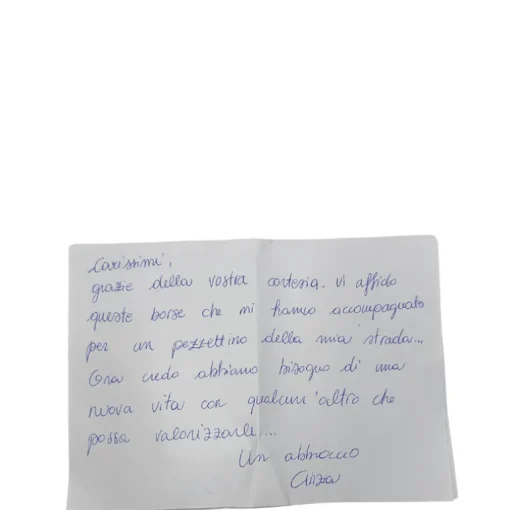 Carissimi,
grazie della vostra cortesia. Vi affido
queste borse che mi hanno accompagnato
per un pezzettino della mia strada...
Ora credo abbiano bisogno di una
nuova vita con qualcun'altro che
possa valorizzarle...
Un abbraccio